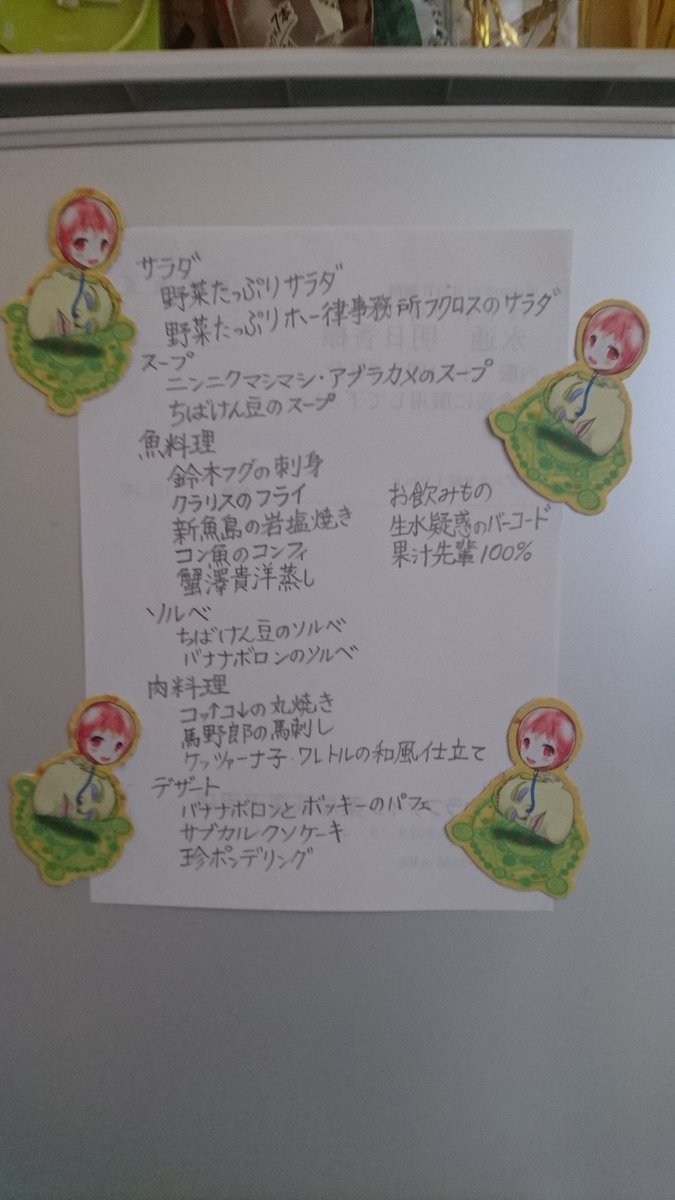 サラダ
野菜たっぷりサラダ
野菜たっぷりホー律事務所フクロスのサラダ
スープ
ニンニクマシマシ・アブラカメのスープ
ちばけん豆のスープ
魚料理
鈴木フグの刺身
クラリスのフライ
新魚島の岩塩焼き
コン魚のコンフィ
蟹澤貴洋蒸し
お飲みもの
生水疑惑のバーコード
果汁先輩100%
ソルベ
ちばけん豆のソルベ
バナナボロンのソルベ
肉料理
コッ↑コ↓の丸焼き
馬野郎の馬刺し
ケッツァーナ子・ワレトルの和風仕立て
デザート
バナナボロンとボッキーのパフェ
サブカルクソケーキ
珍ポンデリング